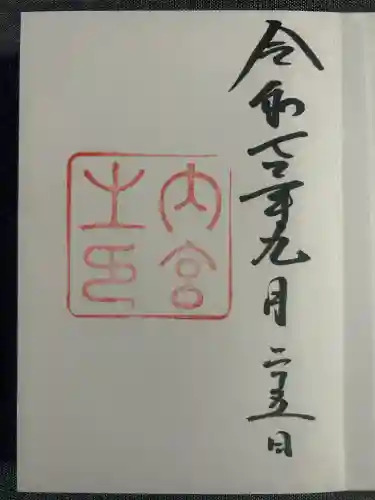 令和六年九月二十五日
内宮
之印